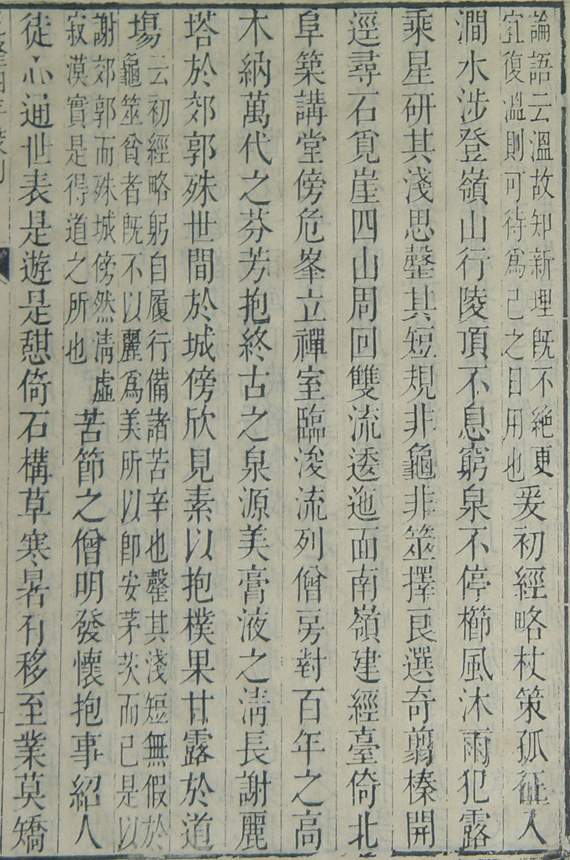 論語云溫故知新理既不絕更
宜復溫則可待為己之日用也
爰初經略杖策孤征入
澗水涉登嶺山行陵頂不息窮泉不停櫛風沐雨犯露
乘星研其淺思罄其短規非龜非筮擇良選奇翦榛開
逕尋石覓崖四山周回雙流逶迤面南嶺建經臺倚北
阜築講堂傍危峯立禪室臨浚流列僧房對百年之高
木納萬代之芬芳抱終古之泉源美膏液之清長謝麗
塔於郊郭殊世間於城傍欣見素以抱樸果甘露於道
場
云初經略躬自履行備諸苦辛也罄其淺短無假於
龜筮貧者既不以麗為美所以卽安茅茨而已是以
謝郊郭而殊城傍然清虛
寂漠實是得道之所也
苦節之僧明發懷抱事紹人
徒心通世表是遊是憩倚石構草寒暑有移至業莫矯